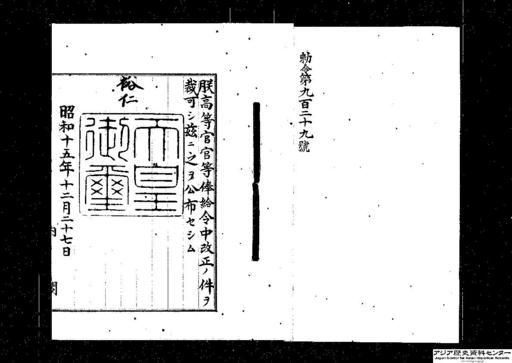 勅令第九百二十九號
朕高等官官等俸給令中改正ノ件ヲ
裁可シ茲ニ之ヲ公布セシム
裕仁
天皇
御璽
昭和十五年十二月二十七日
内閣
アジア歴史資料センター
Japan Center for Asian Historical Records